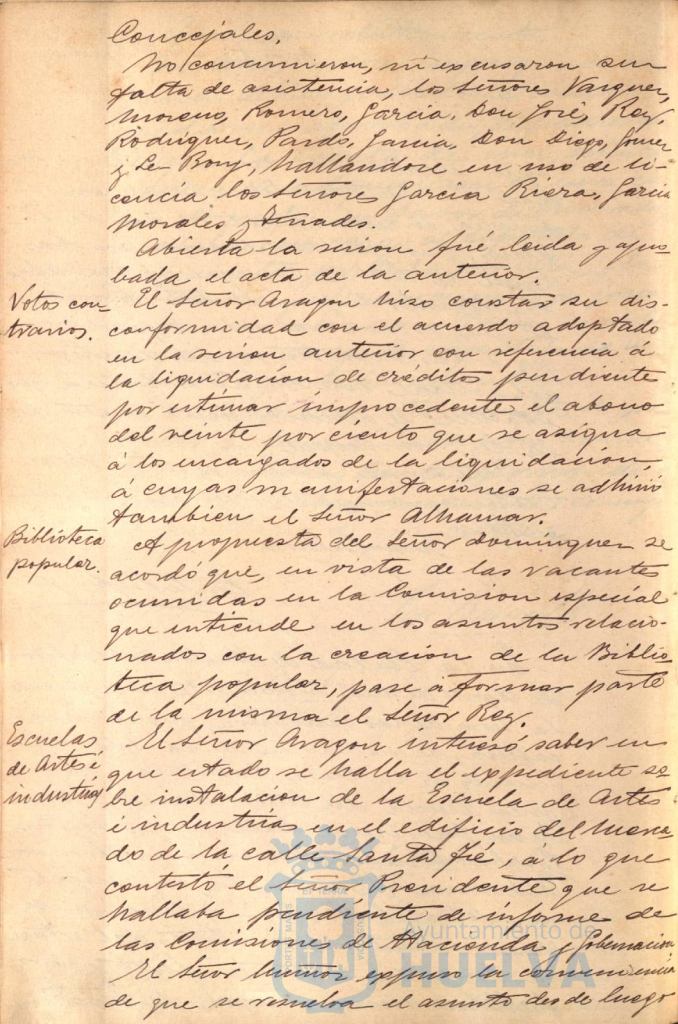 Concejales.
No concurrieron, ni excusaron su
falta de asistencia, los Señores Vazquez,
Moreno, Romero, Garcia, Don José, Rey,
Rodriguez, Pardo, Garcia, Don Diego, Gomez
y Le-Bony, hallandose en uso de li-
cencia los Señores Garcia Riera, Garcia
Morales y Tenades.
Abierta la sesion fué leida y apro-
bada el acta de la anterior.
Votos con-
trarios.
El Señor Aragon hizo constar su dis-
conformidad con el acuerdo adoptado
en la sesion anterior con referencia á
la liquidacion de créditos pendiente
por estimar improcedente el abono
del veinte por ciento que se asigna
á los encargados de la liquidacion,
á cuyas manifestaciones se adhirió
tambien el Señor Alhamar.
Biblioteca
popular.
A propuesta del Señor Dominguez se
acordó que, en vista de las vacantes
ocurridas en la Comision especial
que entiende en los asuntos relacio-
nados con la creacion de la Biblio-
teca popular, pase á formar parte
de la misma el Señor Rey.
Escuelas
de Artes é
industrias
El Señor Aragon interesó saber en
que estado se halla el expediente so-
bre instalacion de la Escuela de Artes
é industrias en el edificio del Merca-
do de la calle Santa Fé, á lo que
contestó el Señor Presidente que se
hallaba pendiente de informe de
las Comisiones de Hacienda y Gobernacion.
El Señor Muñoz expuso la conveniencia
de que se resuelva el asunto desde luego
Ayuntamiento de
HUELVA